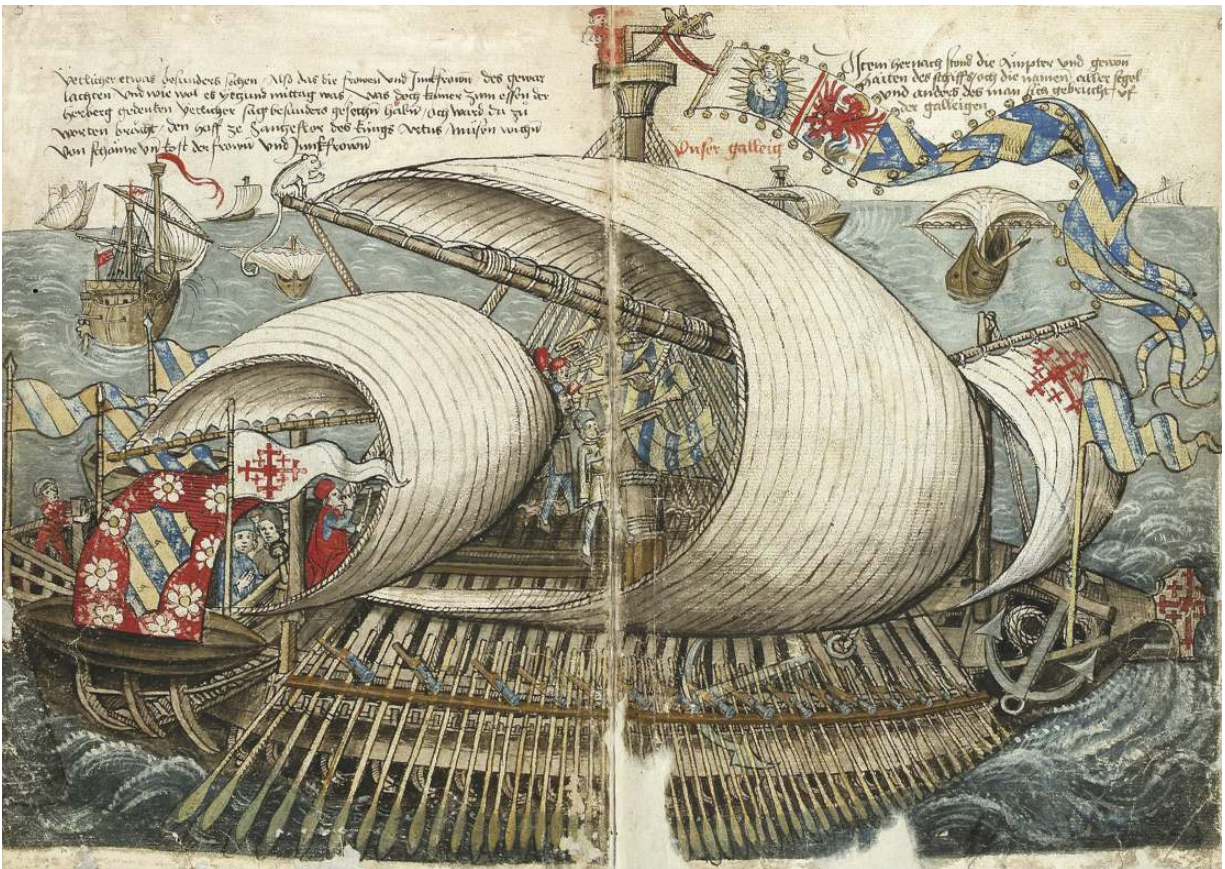 yetlicher etwas besunders sehen Also das die frowen und Junkfrown des gewar
lachten und wie wol es yezund mittag was Was doch kainer zum essen der
herberg gedenken yetlicher sach besunders gesechen haben och ward da zu
worten brācht den hoff ze des kungs Artus wichen
von schonne un kost der frown und Junkfrown
Item hernach stond die Ampter und gewon
haiten des schiffs och die namen aller segel
und anders des man sich gebrucht uf
der galleigen
Unser galleig